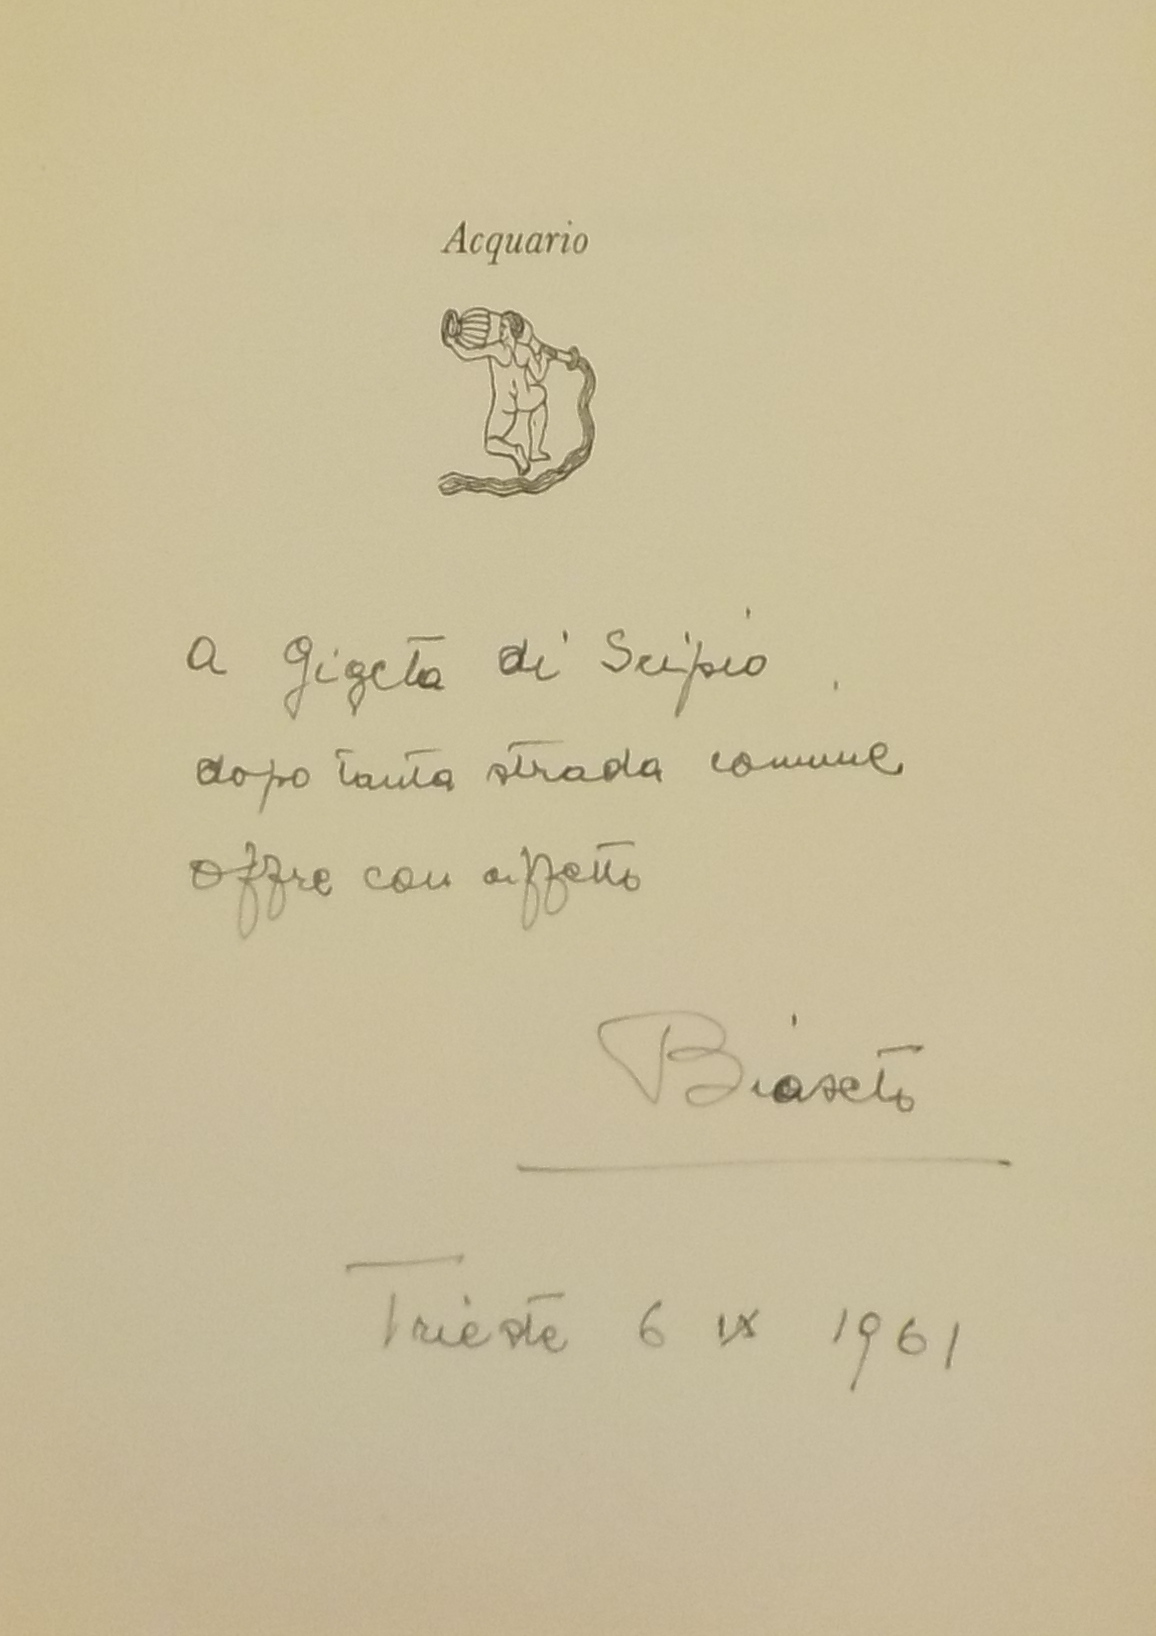 Acquario
a Gigeta di Scipio
dopo tanta strada comune
offre con affetto
Biaseto
Trieste 6 IX 1961